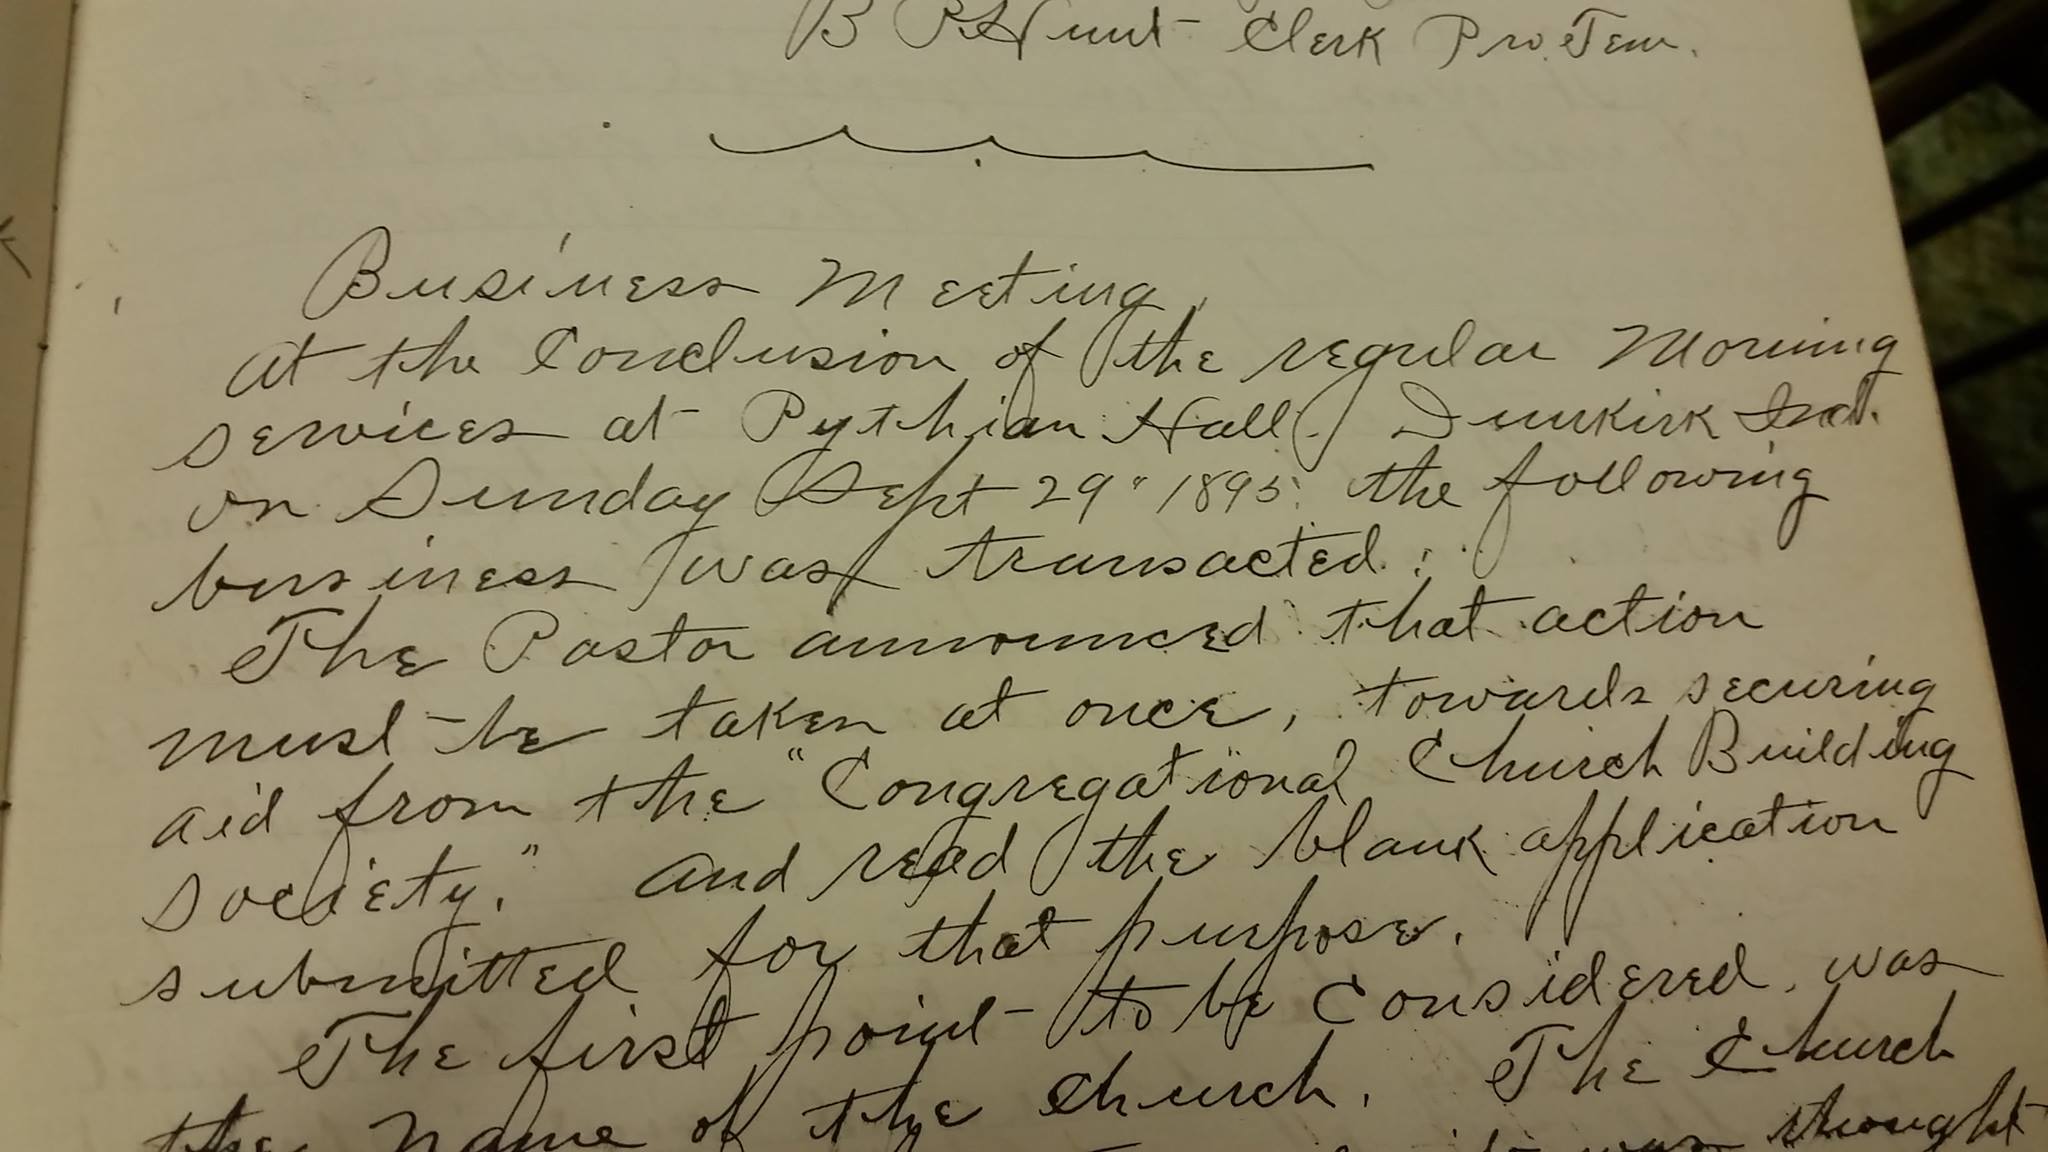 B P Hunt Clerk Pro. Tem.
Business Meeting,
At the Conclusion of the regular Morning
services at Pythian Hall, Dunkirk Ind.
on Sunday Sept 29" 1895. the following
business was transacted:
The Pastor announced that action
must be taken at once, towards securing
aid from the "Congregational Church Building
Society." and read the blank application
submitted for that purpose.
The first point to be Considered, was
the name of the Church. The Church
it was thought